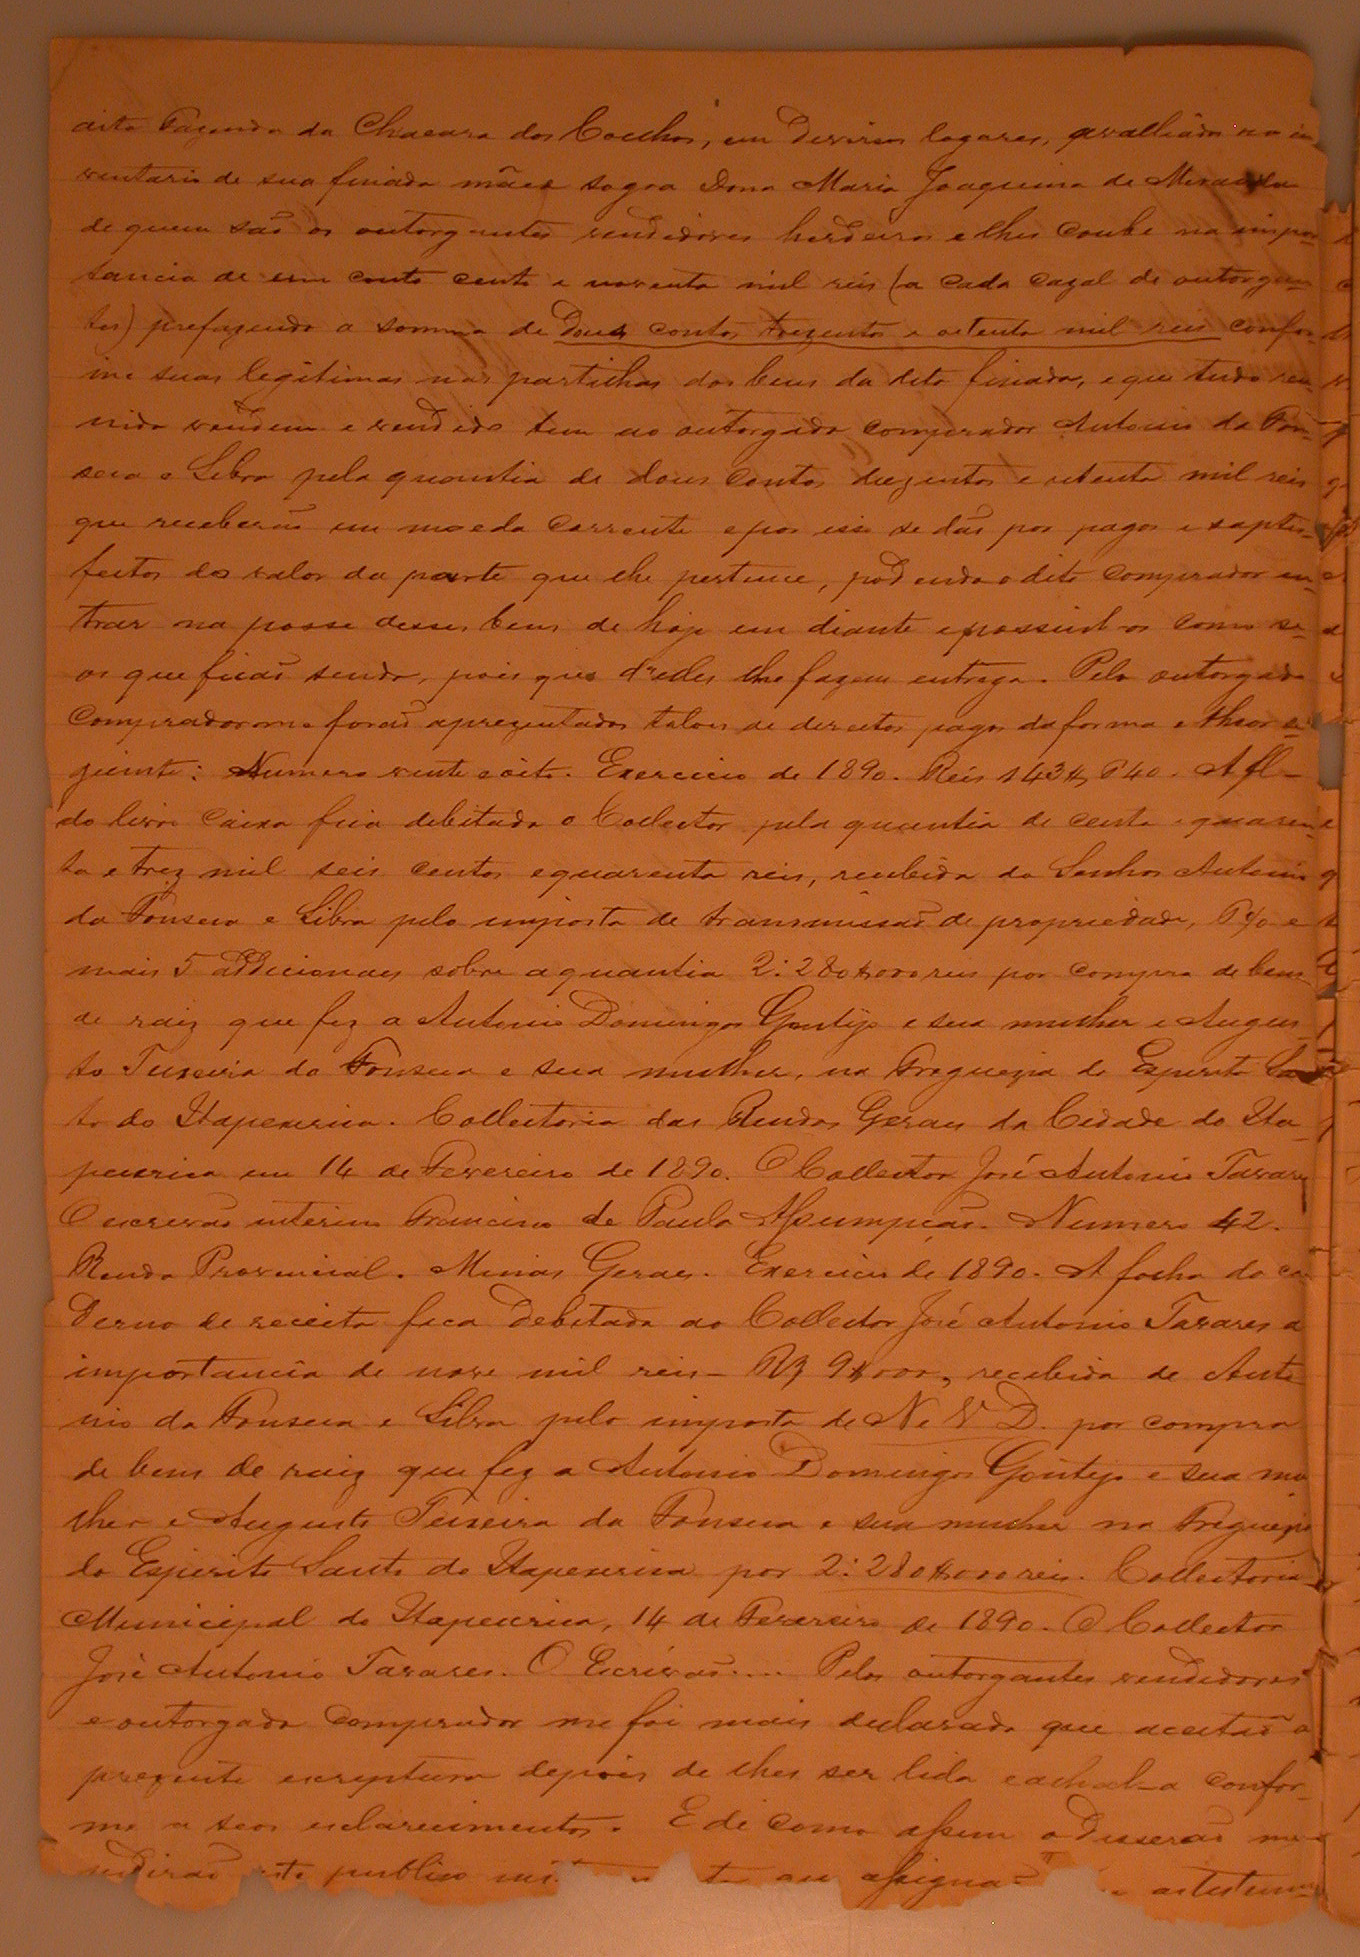 dita Fazenda da Chacara dos Coelhos, em diversos logares, avalliada no in
ventario de sua finada mãe e sogra Dona Maria Joaquina de Miranda
de quem são os outorgantes vendedores herdeiros e lhes coube na impor-
tancia de um conto cento e noventa mil reis (a cada cazal de outorgan-
tes) prefazendo a somma de dous contos trezentos e oitenta mil reis confor-
me suas legitimas nas partilhas dos bens da dita finada, e que tudo reu-
nido vendem e vendido tem ao outorgado comprador Antonio da Fon-
seca e Silva pela quantia de dous contos duzentos e oitenta mil reis
que receberão em moeda corrente e por isso se dão por pagos e saptis-
feitos do valor da parte que lhe pertence, podendo o dito comprador en-
trar na posse desses bens de hoje em diante e possuil-os como se-
os que ficão sendo, pois que d'elles lhe fazem entrega. Pelo outorgado
comprador me forão aprezentados talões de direitos pagos da forma e theor se-
guinte: Numero vente e oito. Exercicio de 1890. Reis 143$640. A fl-
do livro Caixa fica debitado o Collector pela quantia de cento e quaren-
ta e trez mil seis centos e quarenta reis, recebida do Senhor Antonio
da Fonseca e Silva pelo imposto de transmissão de propriedade, 6% e
mais 5 addicionaes sobre a quantia 2:280$000 reis por compra de bens
de raiz que fez a Antonio Domingos Gontijo e sua mulher e Augus-
to Teixeira da Fonseca e sua mulher, na Freguezia do Espirito San
to do Itapecerica. Collectoria das Rendas Geraes da Cidade do Ita-
pecerica em 14 de Fevereiro de 1890. O Collector José Antonio Tavares
O escrivão interino Francisco de Paula Assumpção. Numero 42.
Renda Provincial. Minas Geraes. Exercicio de 1890. A folha do ca
derno de receita fica debitada ao Collector José Antonio Tavares a
importancia de nove mil reis - Rs 9$000, recebida de Anto
nio da Fonseca e Silva pelo imposto de N. V. D. por compra
de bens de raiz que fez a Antonio Domingos Gontijo e sua mu
lher e Augusto Teixeira da Fonseca e sua mulher na Freguezia
do Espirito Santo do Itapecerica por 2:280$000 reis. Collectoria
Municipal do Itapecerica, 14 de Fevereiro de 1890. O Collector
José Antonio Tavares. O Escrivão.... Pelos outorgantes vendedores
e outorgado comprador me foi mais declarado que aceitão a
prezente escriptura depois de lhes ser lida e achal-a confor-
me a seos esclarecimentos. E de como assim o disserão me
pedirão este publico assigna